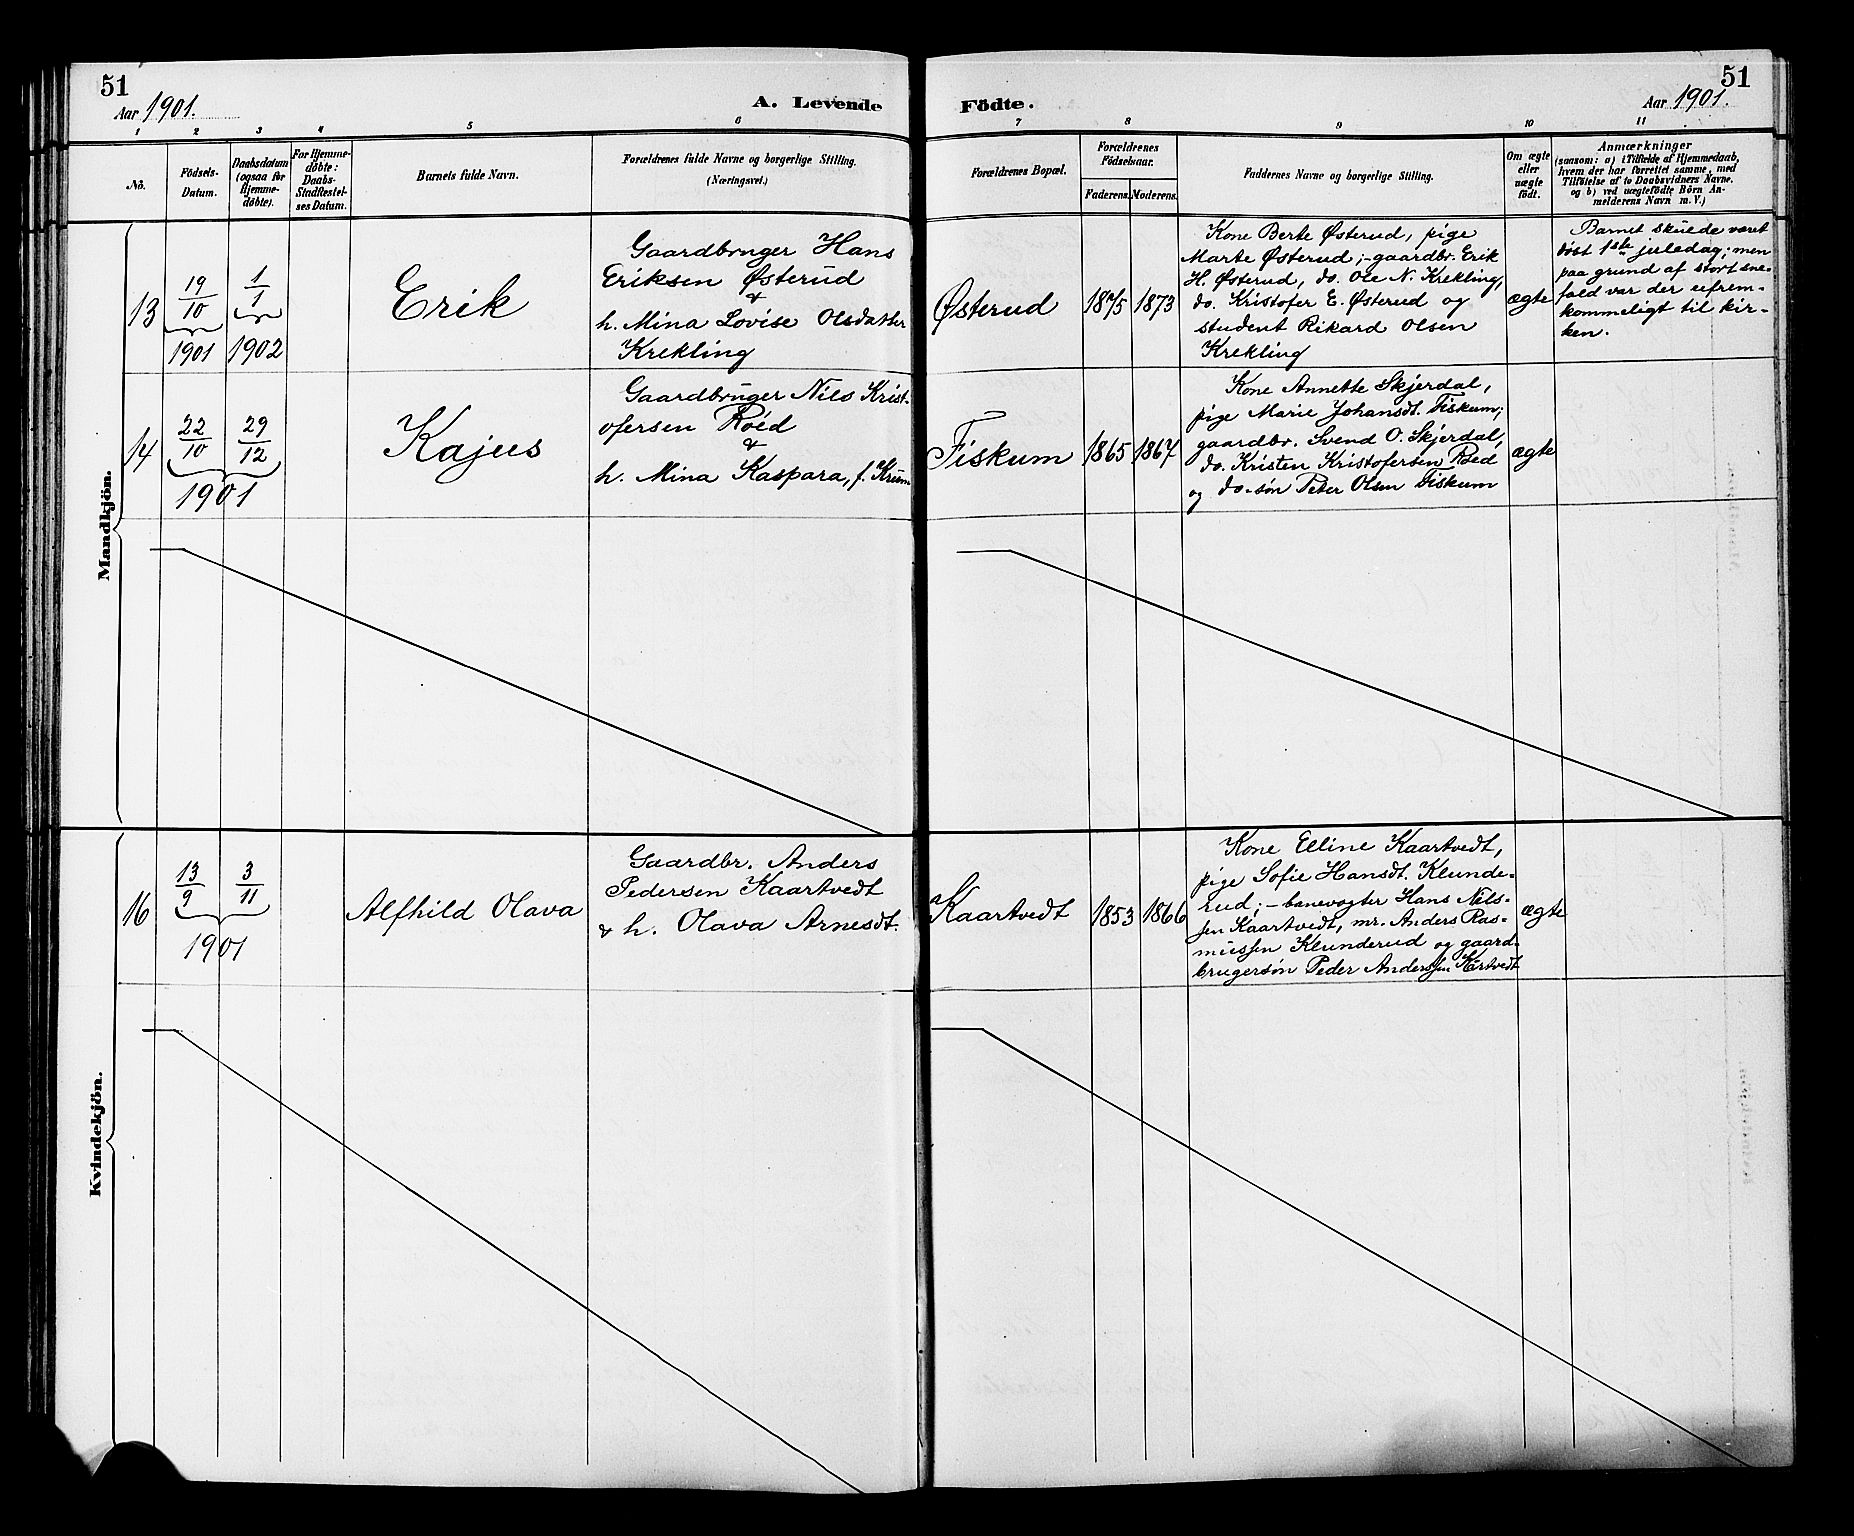 51
Aar 1901.
A. Levende
Födte.
51
Aar 1901.
1
2
3
4
5
6
7
8
9
10
11
No.
Födsels-
Datum.
Daabsdatum
(ogsaa for
Hjemme-
döbte).
For Hjemme-
döbte:
Daabs-
Stadfæstel-
ses Datum.
Barnets fulde Navn.
Forældrenes fulde Navne og borgerlige Stilling.
(Næringsvei.)
Forældrenes Bopæl.
Forældrenes
Födselsaar.
Faderens.
Moderens.
Faddernes Navne og borgerlige Stilling.
Om ægte
eller
uægte
født.
Anmærkninger
(saasom: a) i Tilfælde af Hjemmedaab,
hvem der har forrettet samme, med
Tilføielse af to Daabsvidners Navne.
og b) ved uægtefödte Börn An-
melderens Navn m. V.)
Mandkjön.
13
19/10
1901
1/1
1902
Erik
Gaardbruger Hans
Eriksen Østerud
&
h. Mina Lovise Olsdatter
Krekling
Østerud
1875
1873
Kone Berte Østerud, pige
Marte Østerud; - gaardbr. Erik
H. Østerud, do. Ole N. Krekling,
do. Kristofer E. Østerud og
student Rikard Olsen
Krekling
ægte
Barnet skulde været
døbt 1ste juledag; men
paa grund af stort sne-
fald var der ufrem-
kommeligt til kir-
ken.
14
22/10
29/12
1901
Kajus
Gaardbruger Nils Krist-
ofersen Røed
&
h. Mina Kaspara, f. Krum
Fiskum
1865
1867
Kone Annette Skjerdal,
pige Marie Johansdt. Fiskum;
gaardbr. Svend O. Skjerdal,
do. Kristen Kristofersen Røed
og do-søn Peter Olsen Fiskum
ægte
Kvindekjön.
16
13/9
3/11
1901
Alfhild Olava
Gaardbr. Anders
Pedersen Kaartvedt
& h. Olava Arnesdt.
Kaartvedt
1853
1866
Kone Elline Kaartvedt,
pige Sofie Hansdt. Klunde-
rud; - banevogter Hans Nils-
sen Kaartvedt, mr. Anders Ras-
mussen Klunderud og gaard-
brugersøn Peder Anderssen Kartvedt
ægte